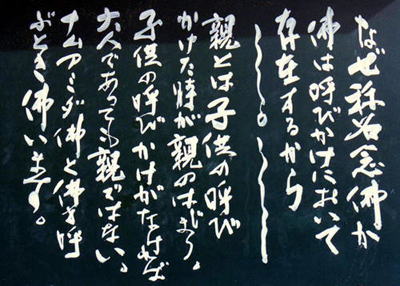 なぜ称名念佛か
佛は呼びかけにおいて
存在するから
親とは子供の呼び
かけた時が親のはじまり、
子供の呼びかけがなければ
大人であっても親ではない。
ナムアミダ佛と佛を呼
ぶとき佛います。